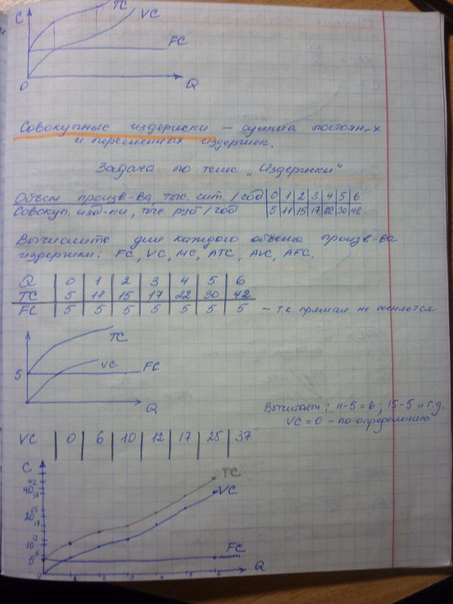 C TC VC
FC
0 Q
Совокупные издержки – сумма постоян-х
и переменных издержек.
Задача по теме „Издержки"
Объем произв-ва, тыс. шт. / год 0 1 2 3 4 5 6
Совокуп. изд-ки, тыс. руб / год 5 11 15 17 22 30 42
Вычислите для каждого объема произв-ва
издержки: FC, VC, MC, ATC, AVC, AFC.
Q 0 1 2 3 4 5 6
TC 5 11 15 17 22 30 42
FC 5 5 5 5 5 5 5 – т.к прямая не меняется
TC
VC
5 FC
Q
Вычитаем: 11-5=6; 15-5 и т.д.
VC=0 – по определению
VC 0 6 10 12 17 25 37
C
TC
VC
FC
Q